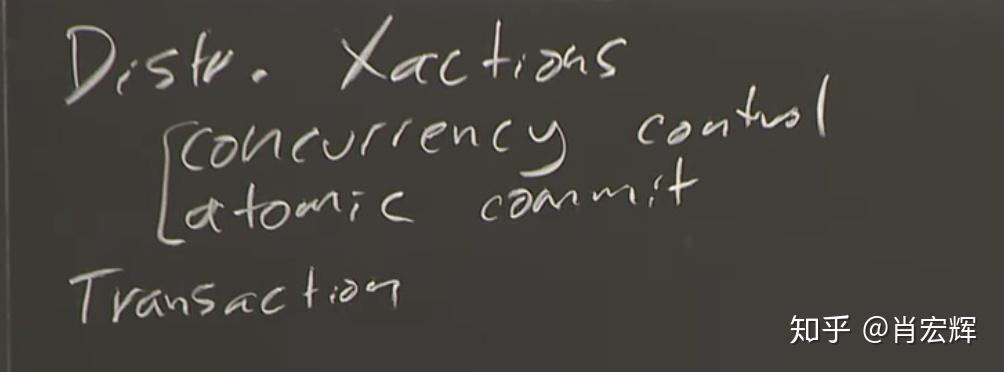 Distr. Xactions
concurrency control
atomic commit
Transaction
知乎 @肖宏辉